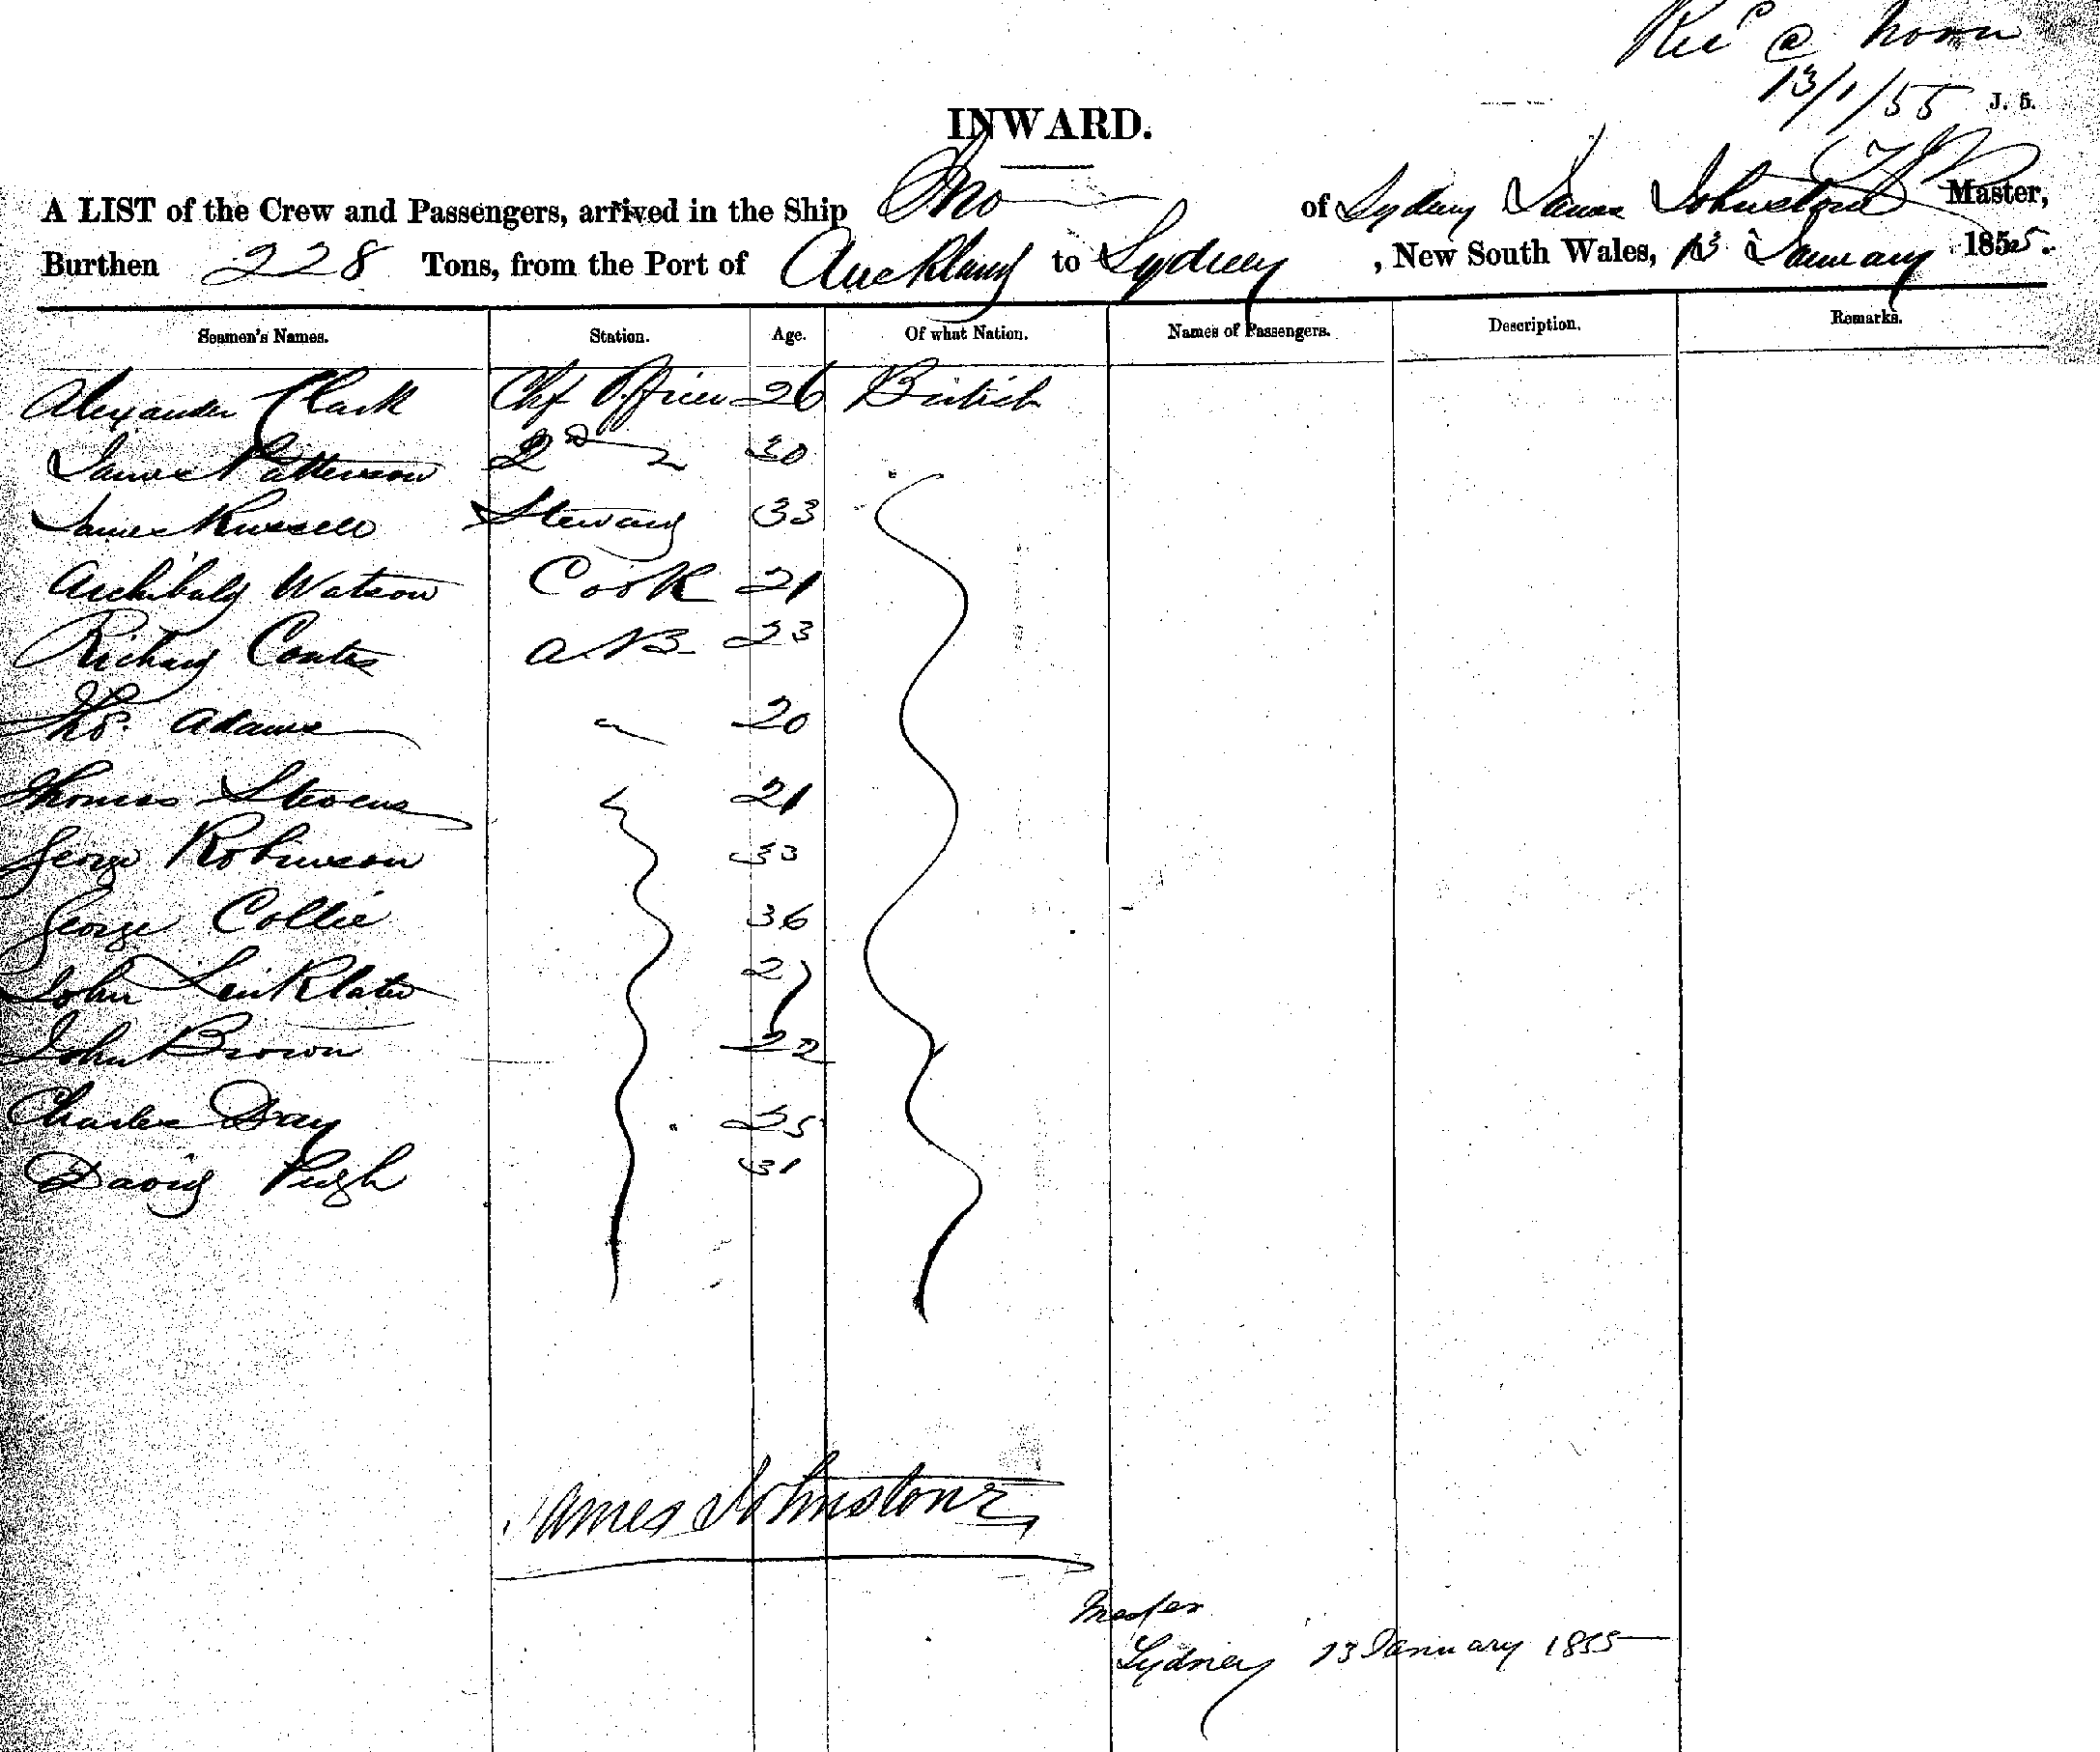 Rec'd @ Noon
13/1/55
J. 5.
INWARD.
A LIST of the Crew and Passengers, arrived in the Ship Ino of Sydney James Johnstone Master,
Burthen 228 Tons, from the Port of Auckland to Sydney, New South Wales, 13 January 1855.
Seamen's Names. Station. Age. Of what Nation. Names of Passengers. Description. Remarks.
Alexander Clark Chf Officer 26 British
James Patterson 2nd " 30
James Russell Steward 33
Archibald Watson Cook 21
Richard Coates A.B. 23
Thos. Adams " 20
Thomas Stevens " 21
George Robinson 33
George Collie 36
John Linklater 27
John Brown 22
Charles Dray 25
David Pugh 31
James Johnstone
Master
Sydney 13 January 1855